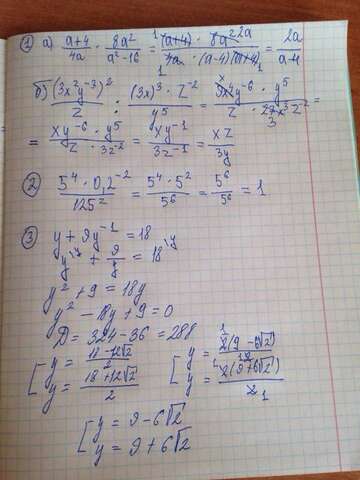 ① а) (a+4)/4a · 8a²/(a²-16) = (a+4) · 8a² 2a / 4a · (a-4)(a+4) = 2a/(a-4)
б) (3x²y⁻³)²/z : (3x)³ · z⁻²/y⁵ = 9x⁴y⁻⁶/z · y⁵/27x³z⁻² =
= xy⁻⁶ · y⁵/z · 3z⁻² = xy⁻¹/3z⁻¹ = xz/3y
② 5⁴ · 0,2⁻²/125² = 5⁴ · 5²/5⁶ = 5⁶/5⁶ = 1
③ y + 9y⁻¹ = 18
y\y + 9/y = 18\y
y² + 9 = 18y
y² - 18y + 9 = 0
D = 324 - 36 = 288
[ y = (18 - 12√2)/2 [ y = 2(9 - 6√2)/2
y = (18 + 12√2)/2 y = 2(9 + 6√2)/2
[ y = 9 - 6√2
y = 9 + 6√2